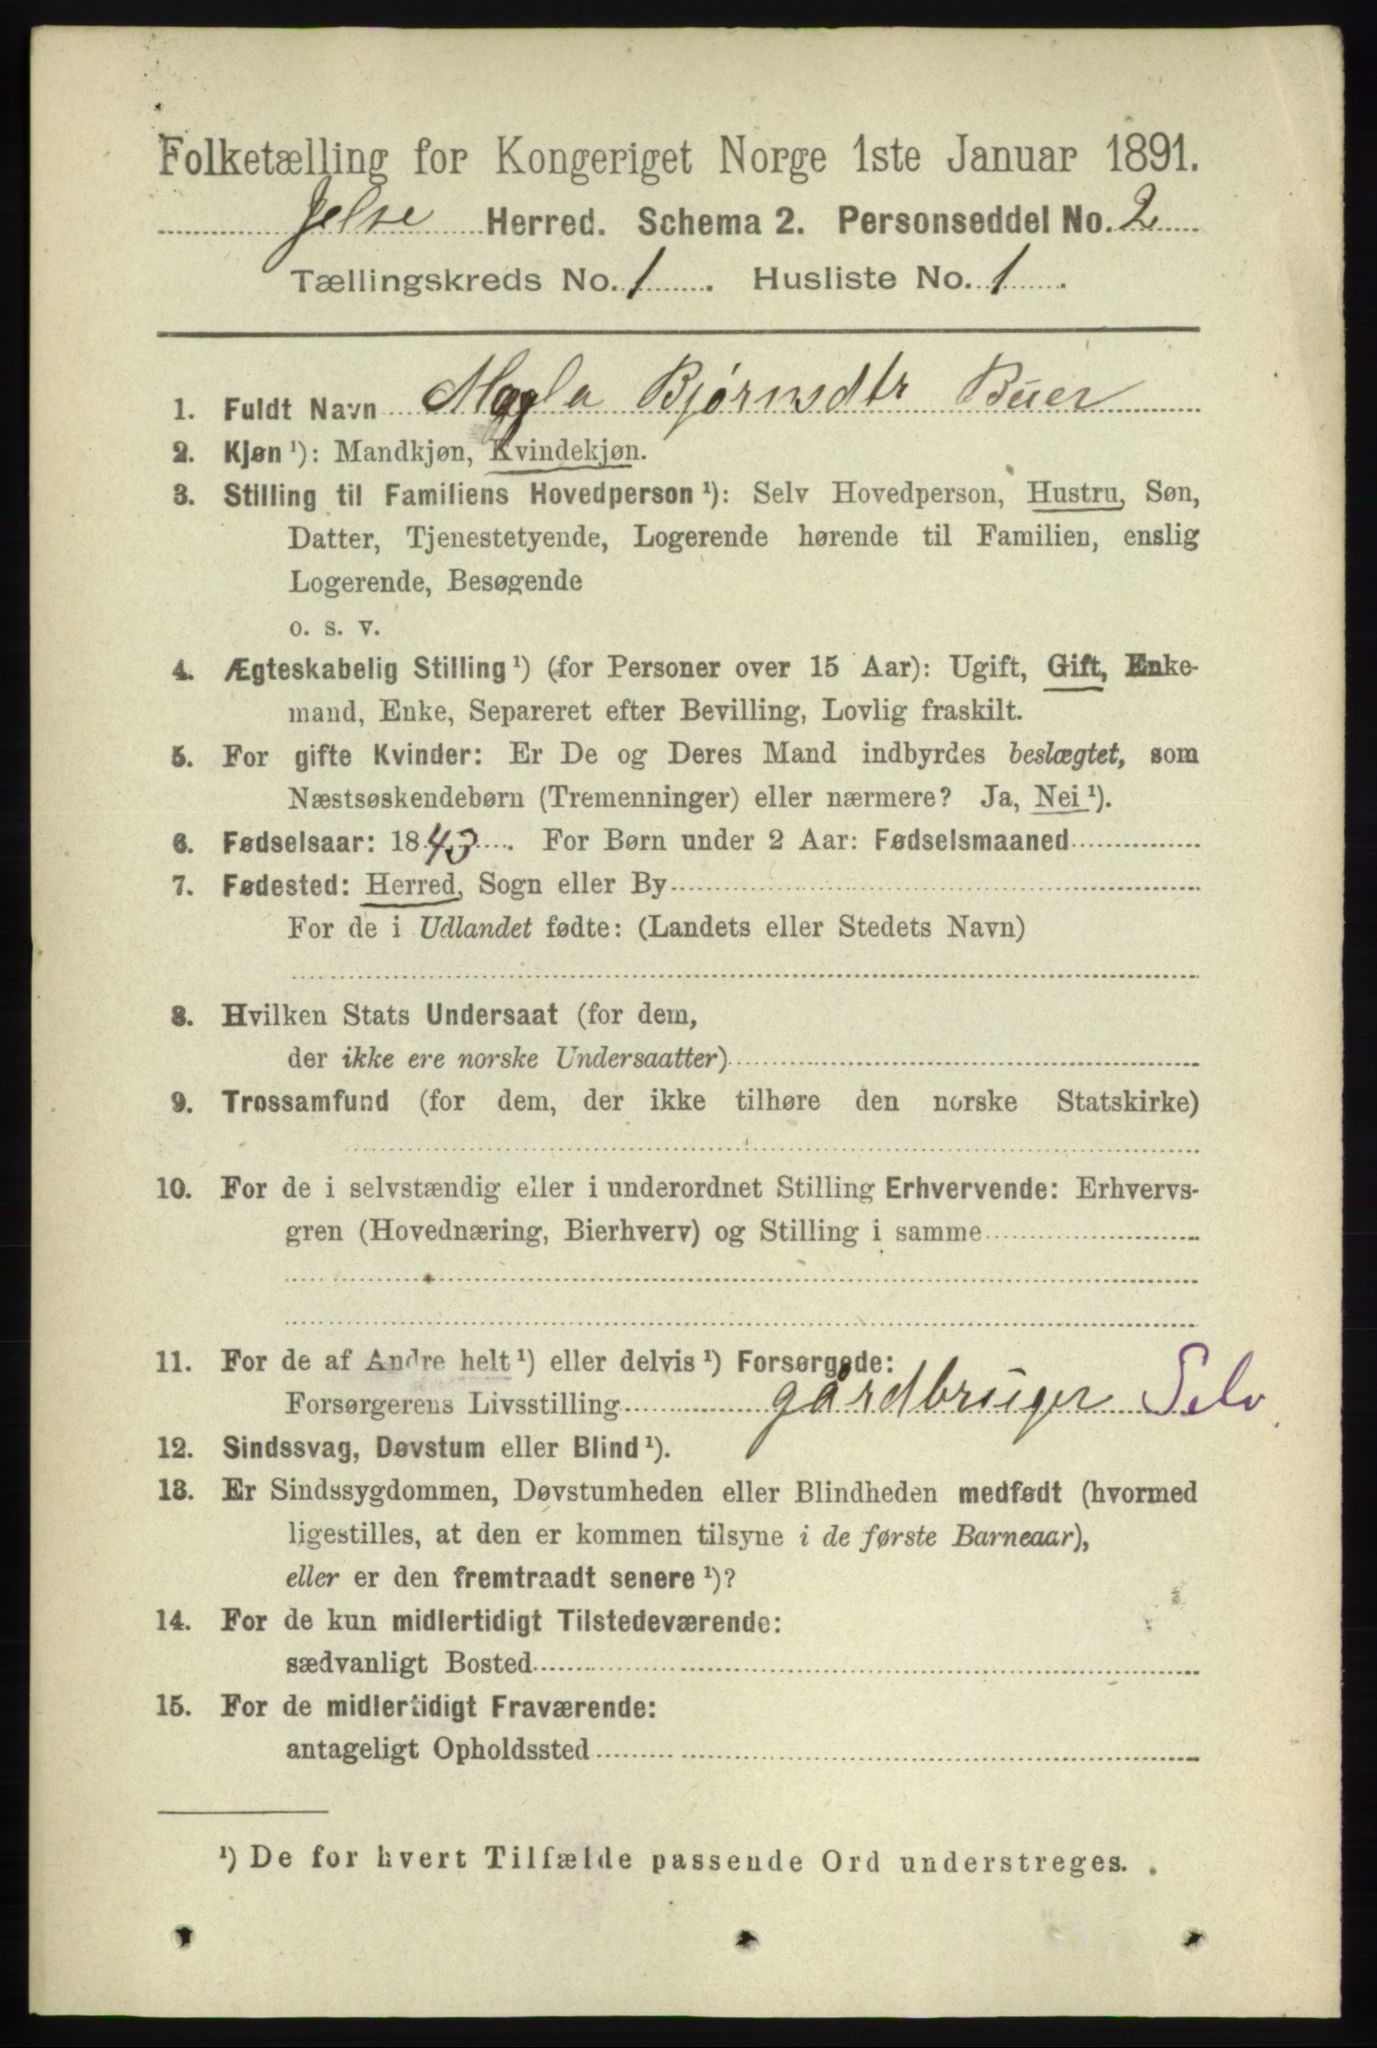 Folketælling for Kongeriget Norge 1ste Januar 1891.
Jelse Herred. Schema 2. Personseddel No. 2
Tællingskreds No. 1. Husliste No. 1.
1. Fuldt Navn Bjørnsdtr Buer
2. Kjøn ¹): Mandkjøn, Kvindekjøn.
3. Stilling til Familiens Hovedperson ¹): Selv Hovedperson, Hustru, Søn,
Datter, Tjenestetyende, Logerende hørende til Familien, enslig
Logerende, Besøgende
o. s. v.
4. Ægteskabelig Stilling ¹) (for Personer over 15 Aar): Ugift, Gift, Enke-
mand, Enke, Separeret efter Bevilling, Lovlig fraskilt.
5. For gifte Kvinder: Er De og Deres Mand indbyrdes beslægtet, som
Næstsøskendebørn (Tremenninger) eller nærmere? Ja, Nei ¹).
6. Fødselsaar: 1843. For Børn under 2 Aar: Fødselsmaaned
7. Fødested: Herred, Sogn eller By
For de i Udlandet fødte: (Landets eller Stedets Navn)
8. Hvilken Stats Undersaat (for dem,
der ikke ere norske Undersaatter)
9. Trossamfund (for dem, der ikke tilhøre den norske Statskirke)
10. For de i selvstændig eller i underordnet Stilling Erhvervende: Erhvervs-
gren (Hovednæring, Bierhverv) og Stilling i samme
11. For de af Andre helt ¹) eller delvis ¹) Forsørgede:
Forsørgerens Livsstilling gårdbruger Selv
12. Sindssvag, Døvstum eller Blind ¹).
13. Er Sindssygdommen, Døvstumheden eller Blindheden medfødt (hvormed
ligestilles, at den er kommen tilsyne i de første Barneaar),
eller er den fremtraadt senere ¹)?
14. For de kun midlertidigt Tilstedeværende:
sædvanligt Bosted
15. For de midlertidigt Fraværende:
antageligt Opholdssted
¹) De for hvert Tilfælde passende Ord understreges.